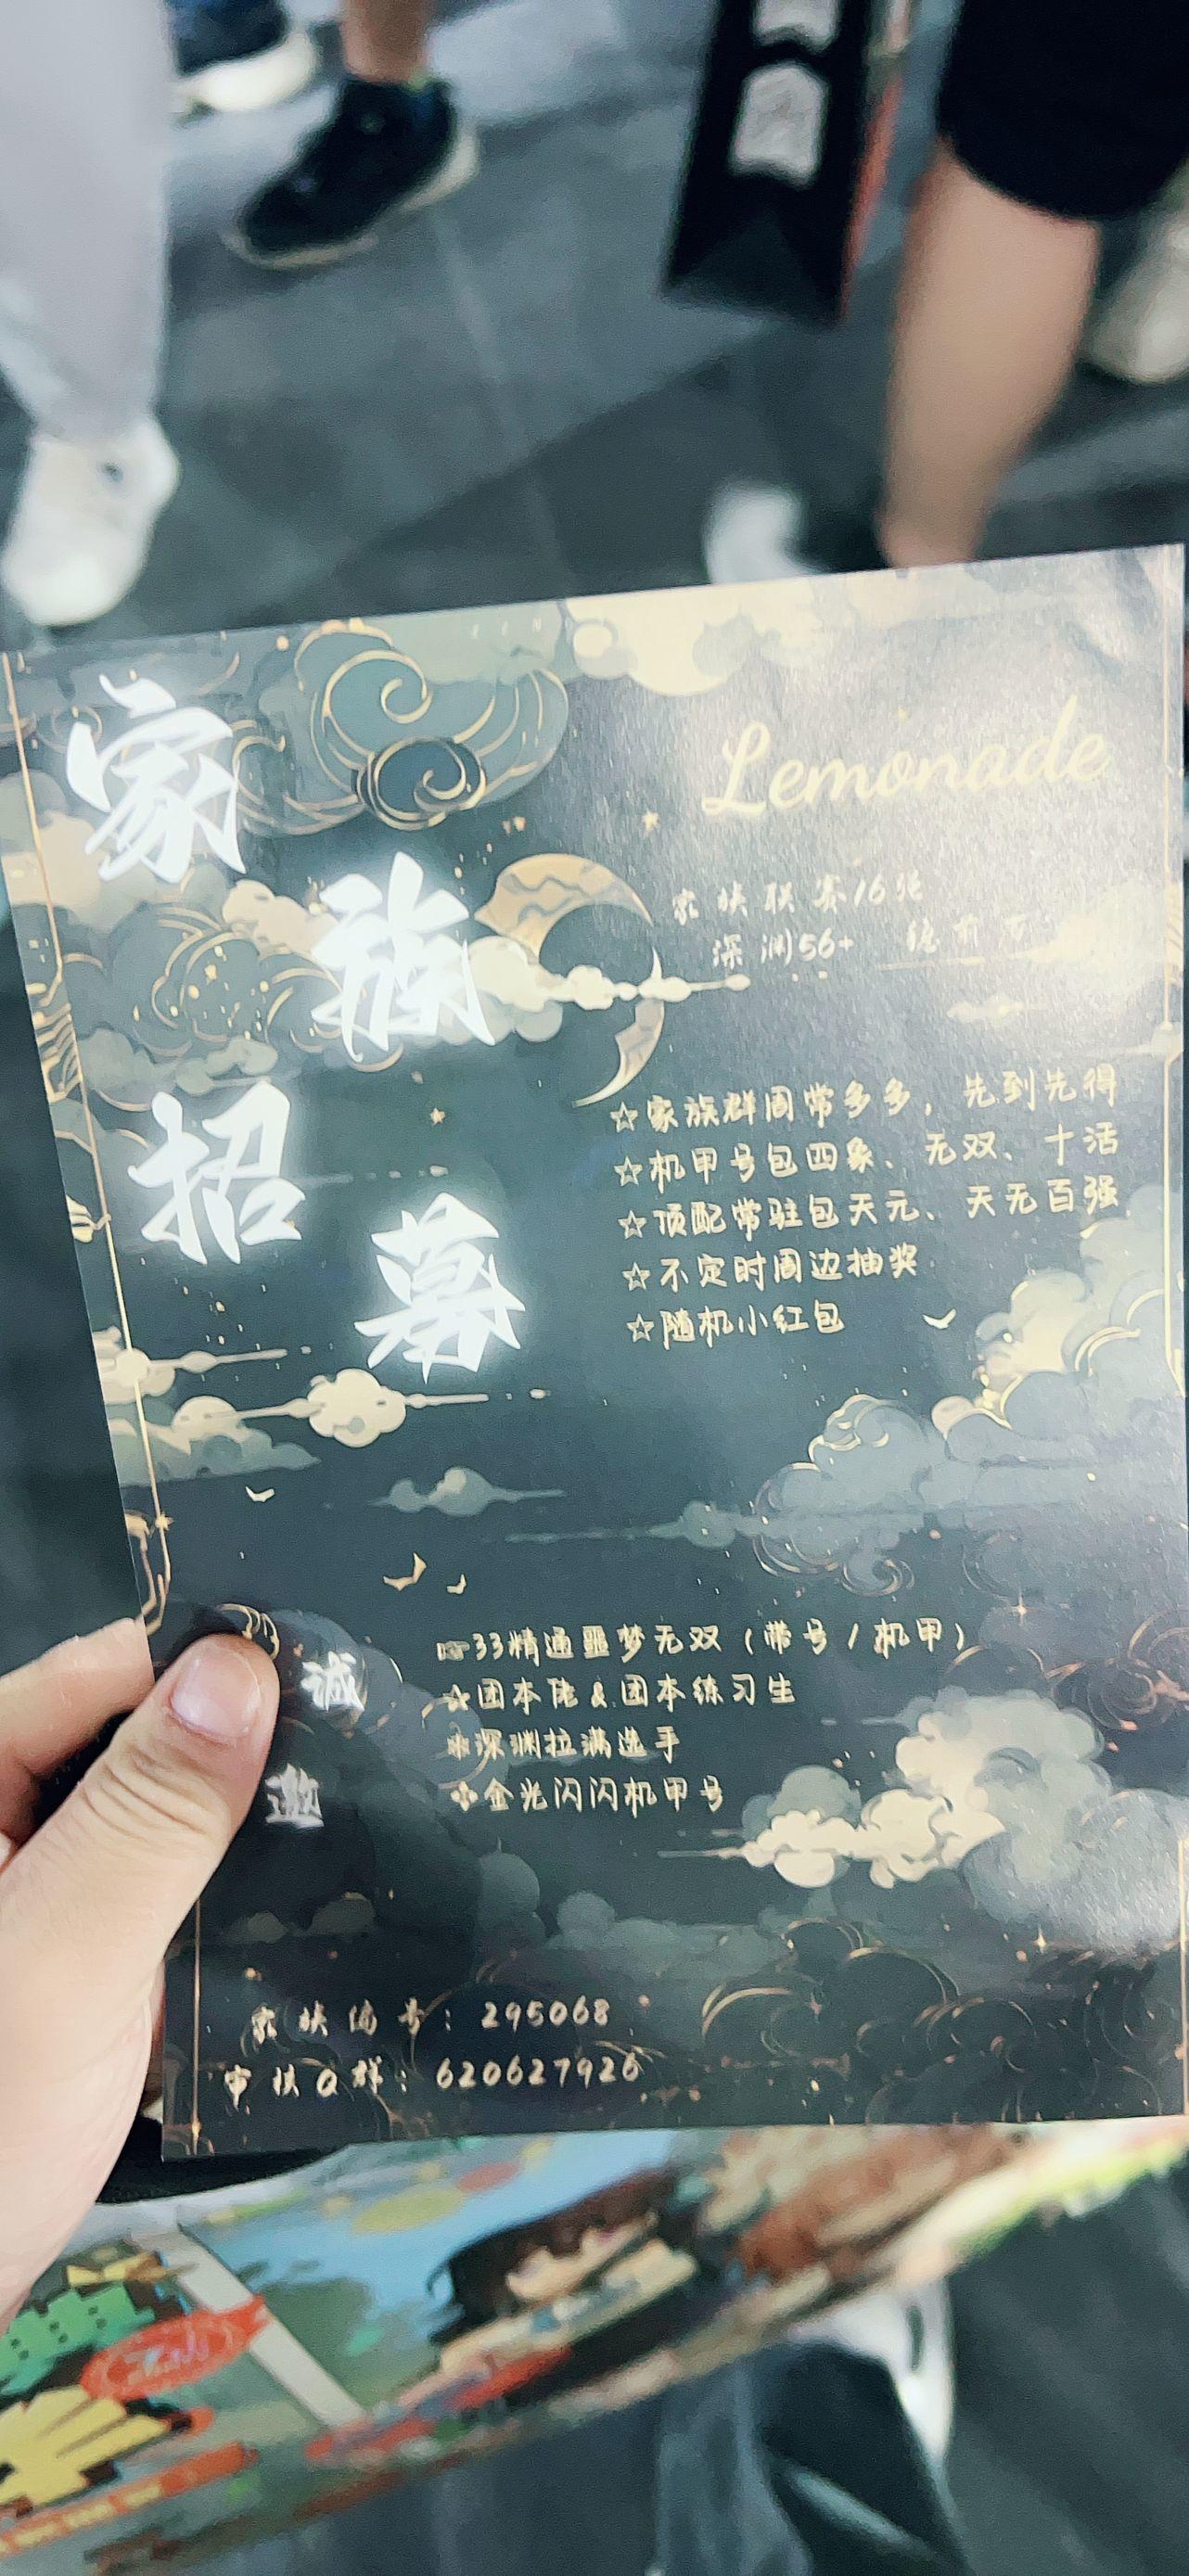 家族招募
Lemonade
家族联赛16强
深渊56+ 稳前百
☆家族群周常多多，先到先得
☆机甲号包四象、无双、十活
☆顶配常驻包天元、天无百强
☆不定时周边抽奖
☆随机小红包
诚邀
☞33精通噩梦无双（带号/机甲）
☆团本佬&团本练习生
❉深渊拉满选手
✣金光闪闪机甲号
家族编号：295068
审核Q群：620627926